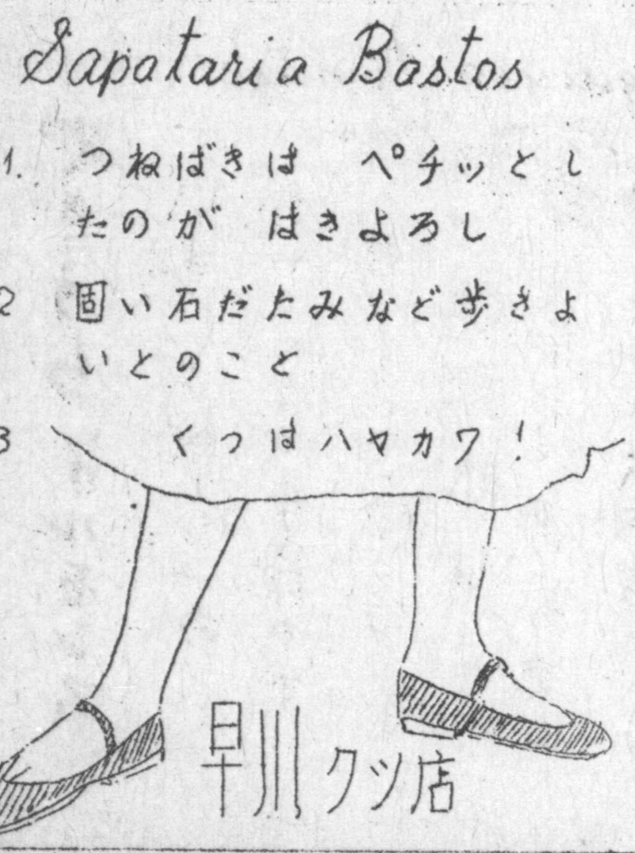 Sapataria Bastos
1. つねばきは ペチッとし
たのが はきよろし
2 固い石だたみなど歩きよ
いとのこと
3 くつはハヤカワ!
早川クツ店